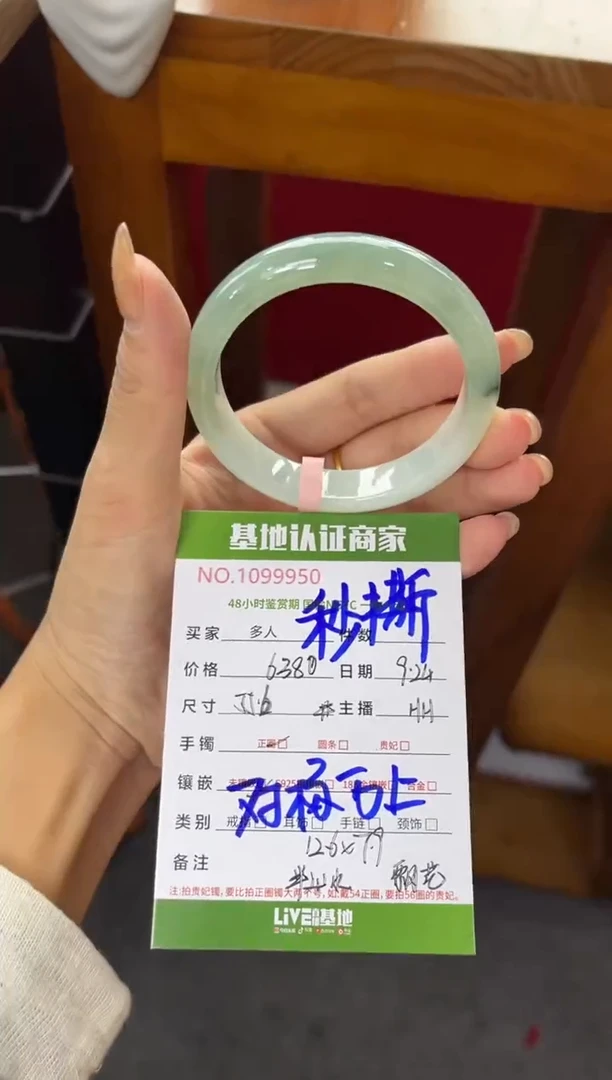 基地认证商家
NO.1099950
48小时鉴赏期
秒撕
买家 多人 件数
价格 6380 日期 9.24
尺寸 主播 HH
手镯 正圈□ 圆条□ 贵妃□
镶嵌
对福石上
类别 戒指□ 耳饰□ 手链□ 颈饰□
备注 12.6x7.9
飘花
注:拍贵妃镯,要比拍正圈镯大两个号,如:戴54正圈,要拍56圈的贵妃。
LIVE基地